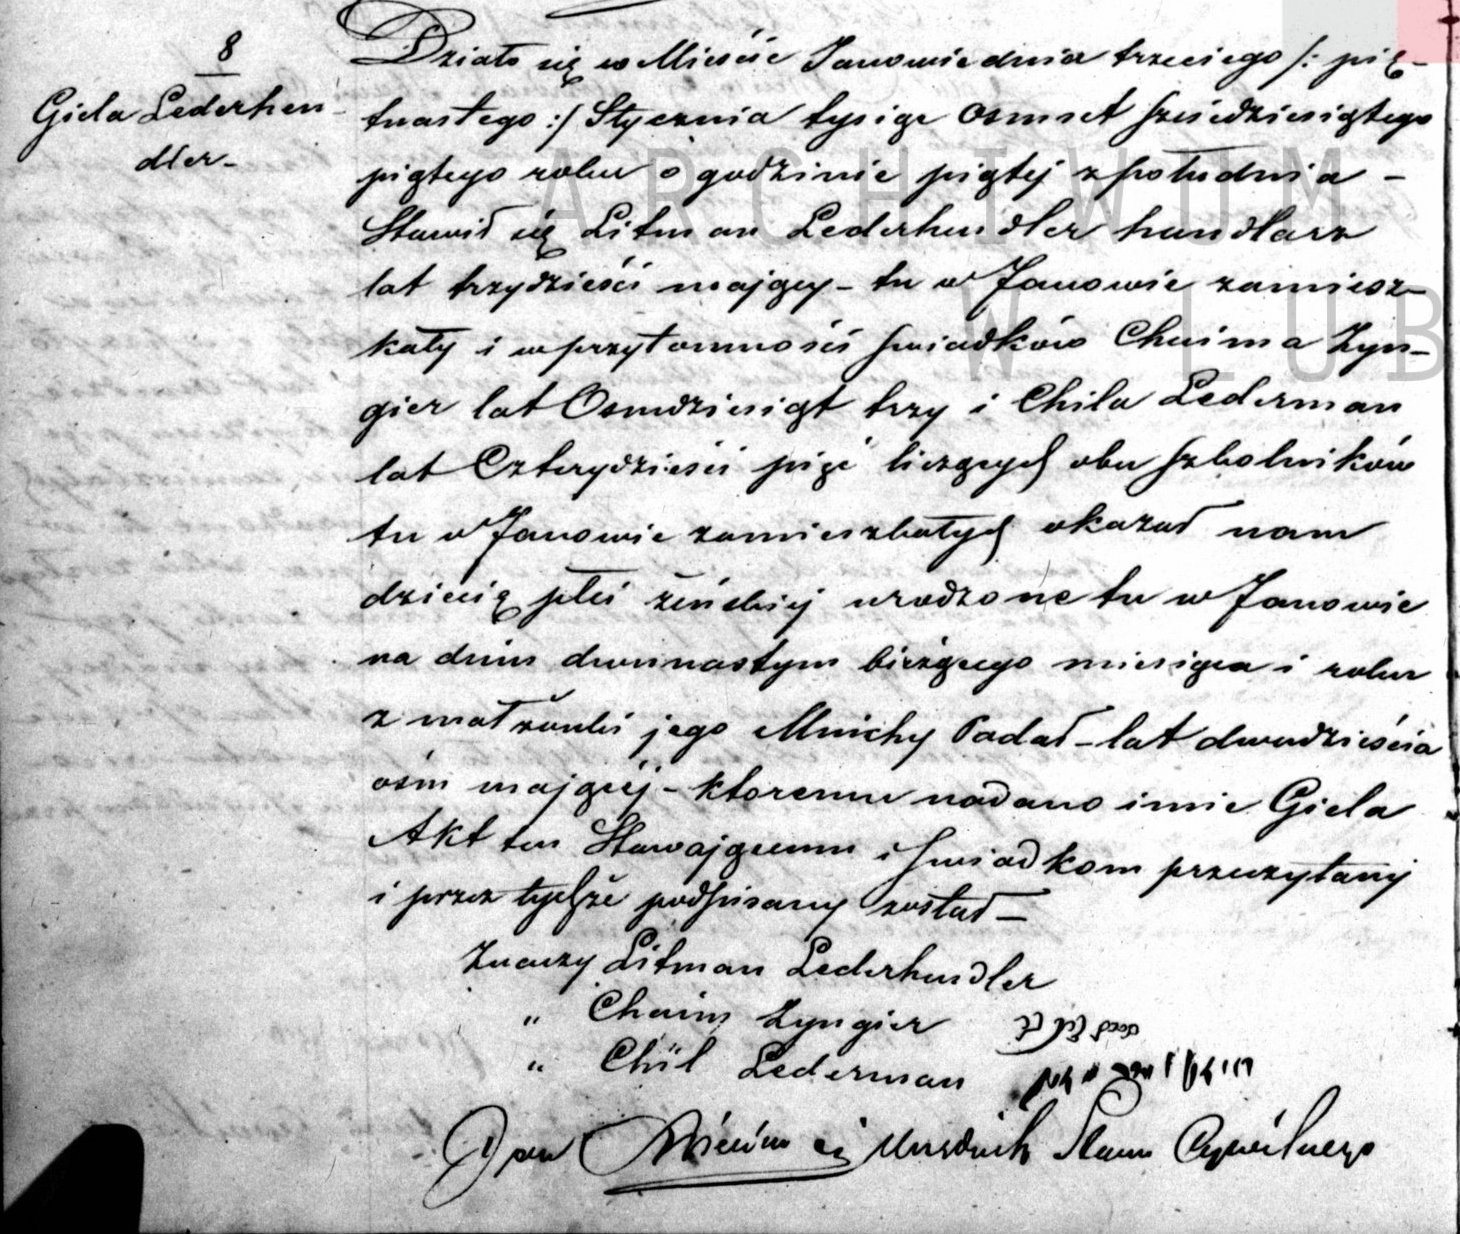 8
Giela Lederhen-
dler-
Działo się w Mieście Janowie dnia trzeciego /: pię-
tnastego :/ Stycznia tysiąc osmset sześćdziesiątego
piątego roku o godzinie piątej z południa -
Stawił się Litman Lederhendler handlarz
lat trzydzieści mający - tu w Janowie zamiesz-
kały i w przytomności świadków Chaima Zyn-
gier lat Osmdziesiąt trzy i Chila Lederman
lat Czterydzieści pięć liczących obu szkolników
tu w Janowie zamieszkałych okazał nam
dziecię płci żeńskiej urodzone tu w Janowie
na dniu dwunastym bieżącego miesiąca i roku
z małżonki jego Mnichy Padał - lat dwadzieścia
ośm mającéj - ktoremu nadano imie Giela
Akt ten Stawającemu i świadkom przeczytany
i przez tychże podpisany został -
Znaczy Litman Lederhendler
" Chaim Zyngier
" Chiil Lederman
Jan Urzędnik Stanu Cywilnego
ARCHIWUM
W LUB